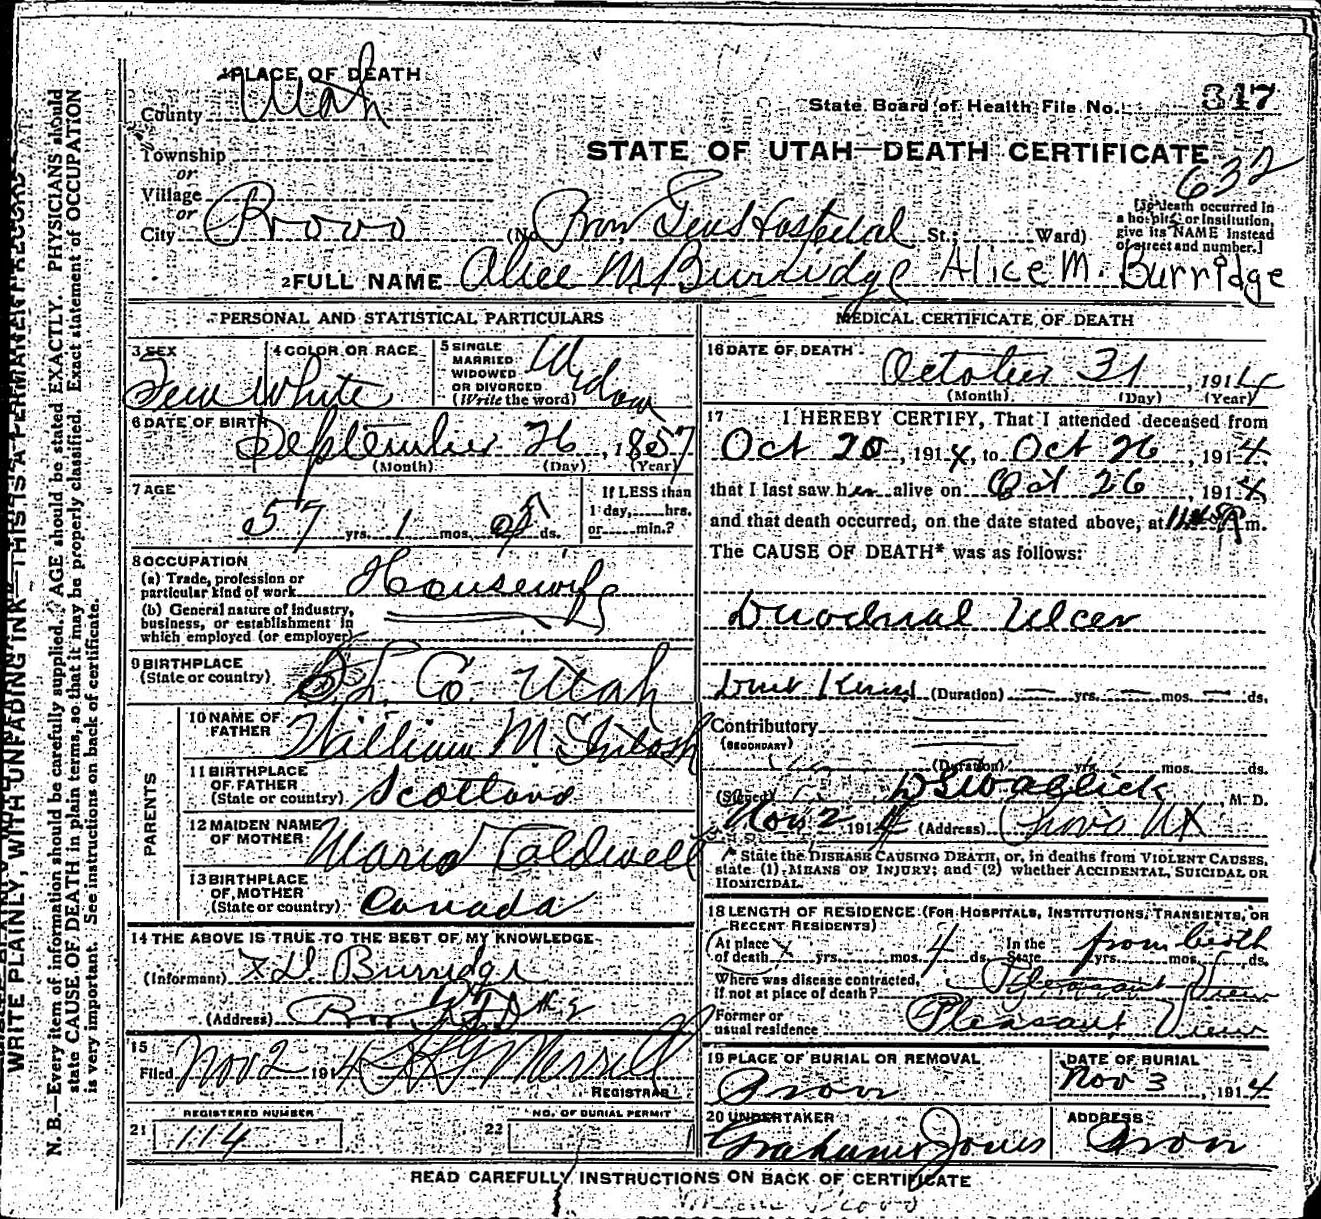 1 PLACE OF DEATH
County Utah
State Board of Health File No. 317
Township
or
STATE OF UTAH—DEATH CERTIFICATE
632
Village
or
City Provo (No. Prov Genl Hospital St.; Ward)
[If death occurred in
a hospital or institution,
give its NAME instead
of street and number.]
2 FULL NAME Alice M Burridge Alice M. Burridge
PERSONAL AND STATISTICAL PARTICULARS
3 SEX Fem
4 COLOR OR RACE White
5 SINGLE
MARRIED
WIDOWED
OR DIVORCED
(Write the word) Widow
6 DATE OF BIRTH September 26, 1857
(Month) (Day) (Year)
7 AGE
57 yrs. 1 mos. 5 ds.
If LESS than
1 day, hrs.
or min.?
8 OCCUPATION
(a) Trade, profession or
particular kind of work Housewife
(b) General nature of industry,
business, or establishment in
which employed (or employer)
9 BIRTHPLACE
(State or country) S L Co Utah
PARENTS
10 NAME OF
FATHER William McIntosh
11 BIRTHPLACE
OF FATHER
(State or country) Scotland
12 MAIDEN NAME
OF MOTHER Maria Caldwell
13 BIRTHPLACE
OF MOTHER
(State or country) Canada
14 THE ABOVE IS TRUE TO THE BEST OF MY KNOWLEDGE
(Informant) Burridge
(Address)
15
Filed Nov 2 1914 Merrill
REGISTRAR
REGISTERED NUMBER
21 114
NO. OF BURIAL PERMIT
22
MEDICAL CERTIFICATE OF DEATH
16 DATE OF DEATH
October 31, 1914
(Month) (Day) (Year)
17 I HEREBY CERTIFY, That I attended deceased from
Oct 20, 1914, to Oct 26, 1914
that I last saw her alive on Oct 26, 1914
and that death occurred, on the date stated above, at m.
The CAUSE OF DEATH* was as follows:
Duodenal Ulcer
Dont Know (Duration) — yrs. — mos. — ds.
Contributory
(SECONDARY)
(Duration) yrs. mos. ds.
(Signed) , M. D.
Nov 2 1914 (Address) Provo Ut
* State the DISEASE CAUSING DEATH, or, in deaths from VIOLENT CAUSES,
state (1) MEANS OF INJURY; and (2) whether ACCIDENTAL, SUICIDAL OR
HOMICIDAL.
18 LENGTH OF RESIDENCE (FOR HOSPITALS, INSTITUTIONS, TRANSIENTS, OR
RECENT RESIDENTS)
At place
of death yrs. mos. 4 ds.
In the
State from birth yrs. mos. ds.
Where was disease contracted,
if not at place of death? Pleasant View
Former or
usual residence Pleasant View
19 PLACE OF BURIAL OR REMOVAL
Provo
DATE OF BURIAL
Nov 3, 1914
20 UNDERTAKER
Graham Jones
ADDRESS
Provo
READ CAREFULLY INSTRUCTIONS ON BACK OF CERTIFICATE
WRITE PLAINLY, WITH UNFADING INK—THIS IS A PERMANENT RECORD
N. B.—Every item of information should be carefully supplied. AGE should be stated EXACTLY. PHYSICIANS should
state CAUSE OF DEATH in plain terms, so that it may be properly classified. Exact statement of OCCUPATION
is very important. See instructions on back of certificate.